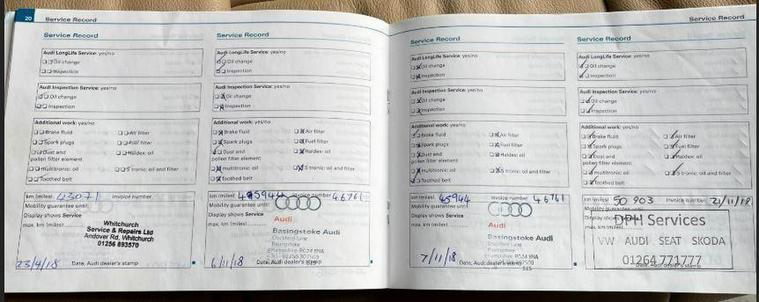 20 Service Record
Service Record
Audi LongLife Service: yes/no
Oil change
Inspection
Audi Inspection Service: yes/no
Oil change
Inspection
Additional work: yes/no
Brake fluid Air filter
Spark plugs Fuel filter
Dust and Haldex: oil
pollen filter element
multitronic: oil S tronic: oil and filter
Toothed belt
km (miles): 43071 Invoice number
Mobility guarantee until:
Display shows Service
max. km (miles)
Whitchurch
Service & Repairs Ltd
Andover Rd. Whitchurch
01256 893570
23/4/18 Date, Audi dealer's stamp
Service Record
Audi LongLife Service: yes/no
Oil change
Inspection
Audi Inspection Service: yes/no
Oil change
Inspection
Additional work: yes/no
Brake fluid Air filter
Spark plugs Fuel filter
Dust and Haldex: oil
pollen filter element
multitronic: oil S tronic: oil and filter
Toothed belt
km (miles): Invoice number 46761
Mobility guarantee until:
Display shows Service
max. km (miles)
Audi
Basingstoke Audi
6/11/18 Date, Audi dealer's stamp
Service Record
Service Record
Audi LongLife Service: yes/no
Oil change
Inspection
Audi Inspection Service: yes/no
Oil change
Inspection
Additional work: yes/no
Brake fluid Air filter
Spark plugs Fuel filter
Dust and Haldex: oil
pollen filter element
multitronic: oil S tronic: oil and filter
Toothed belt
km (miles): 45944 Invoice number 46761
Mobility guarantee until:
Display shows Service
max. km (miles)
Audi
Basingstoke Audi
7/11/18 Date, Audi dealer's stamp
Service Record
Audi LongLife Service: yes/no
Oil change
Inspection
Audi Inspection Service: yes/no
Oil change
Inspection
Additional work: yes/no
Brake fluid Air filter
Spark plugs Fuel filter
Dust and Haldex: oil
pollen filter element
multitronic: oil S tronic: oil and filter
Toothed belt
km (miles): 50 903 Invoice number 21/11/19
Mobility guarantee until:
Display shows Service
max. km (miles)
DPH Services
VW AUDI SEAT SKODA
01264 771777
Date, Audi dealer's stamp